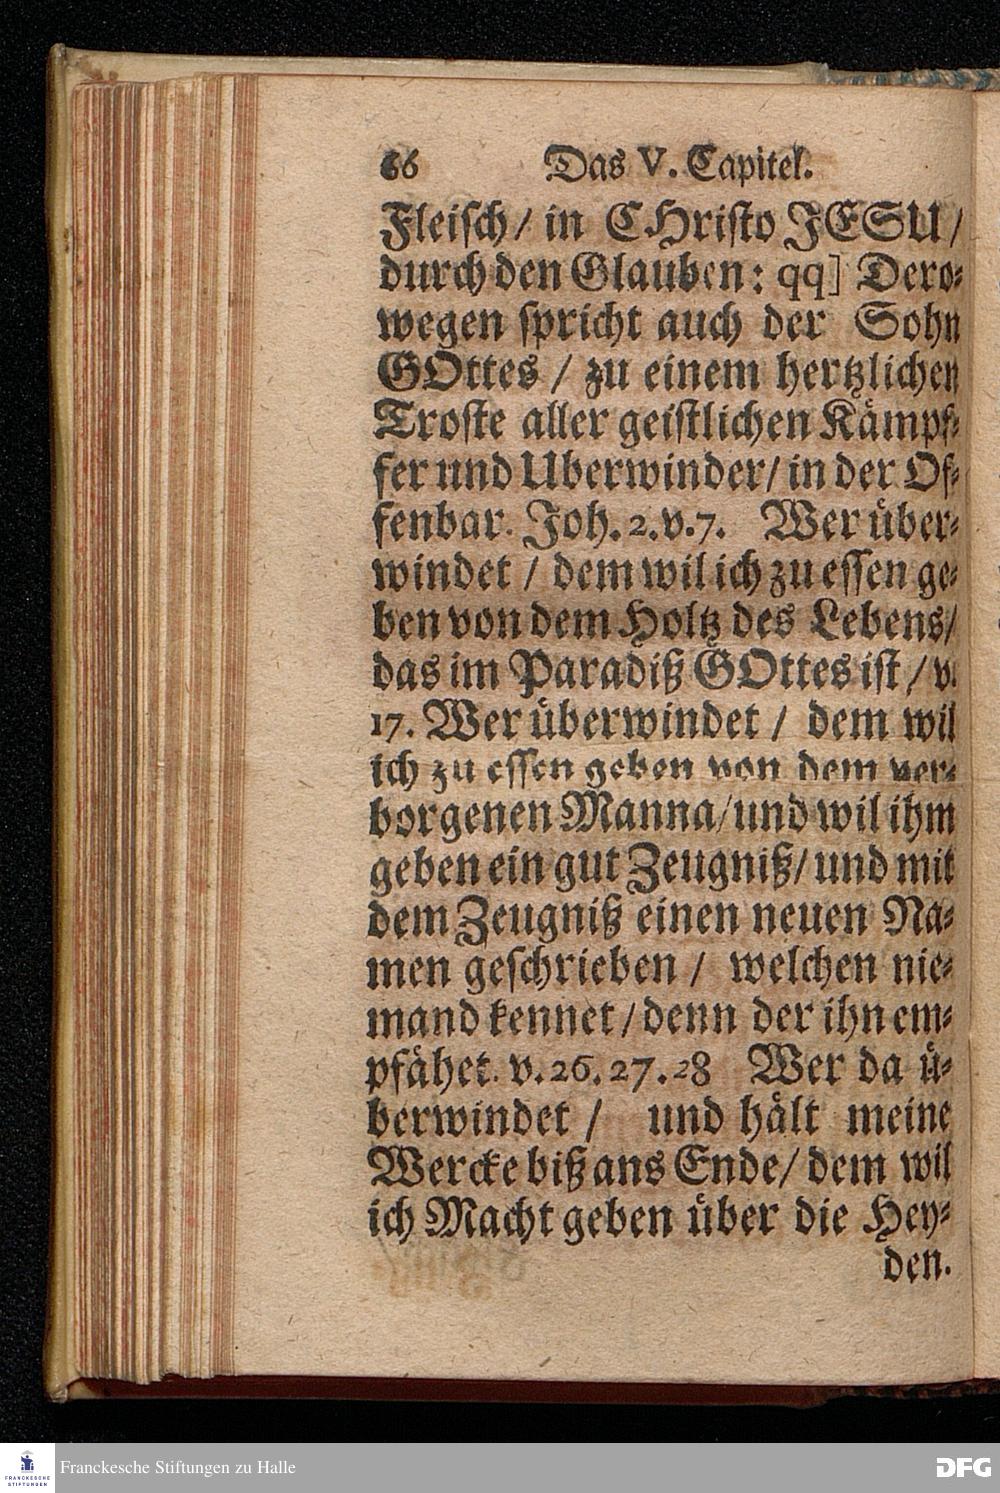 66 Das V. Capitel.
Fleisch / in CHristo JESU /
durch den Glauben: qq] Dero-
wegen spricht auch der Sohn
GOttes / zu einem hertzlichen
Troste aller geistlichen Kämpf-
fer und Uberwinder / in der Of-
fenbar. Joh. 2. v. 7. Wer über-
windet / dem wil ich zu essen ge-
ben von dem Holtz des Lebens /
das im Paradiß GOttes ist / v.
17. Wer überwindet / dem wil
ich zu essen geben von dem ver-
borgenen Manna / und wil ihm
geben ein gut Zeugniß / und mit
dem Zeugniß einen neuen Na-
men geschrieben / welchen nie-
mand kennet / denn der ihn em-
pfähet. v. 26. 27. 28 Wer da ü-
berwindet / und hält meine
Wercke biß ans Ende / dem wil
ich Macht geben über die Hey-
den.
FRANCKESCHE
STIFTUNGEN
Franckesche Stiftungen zu Halle
DFG